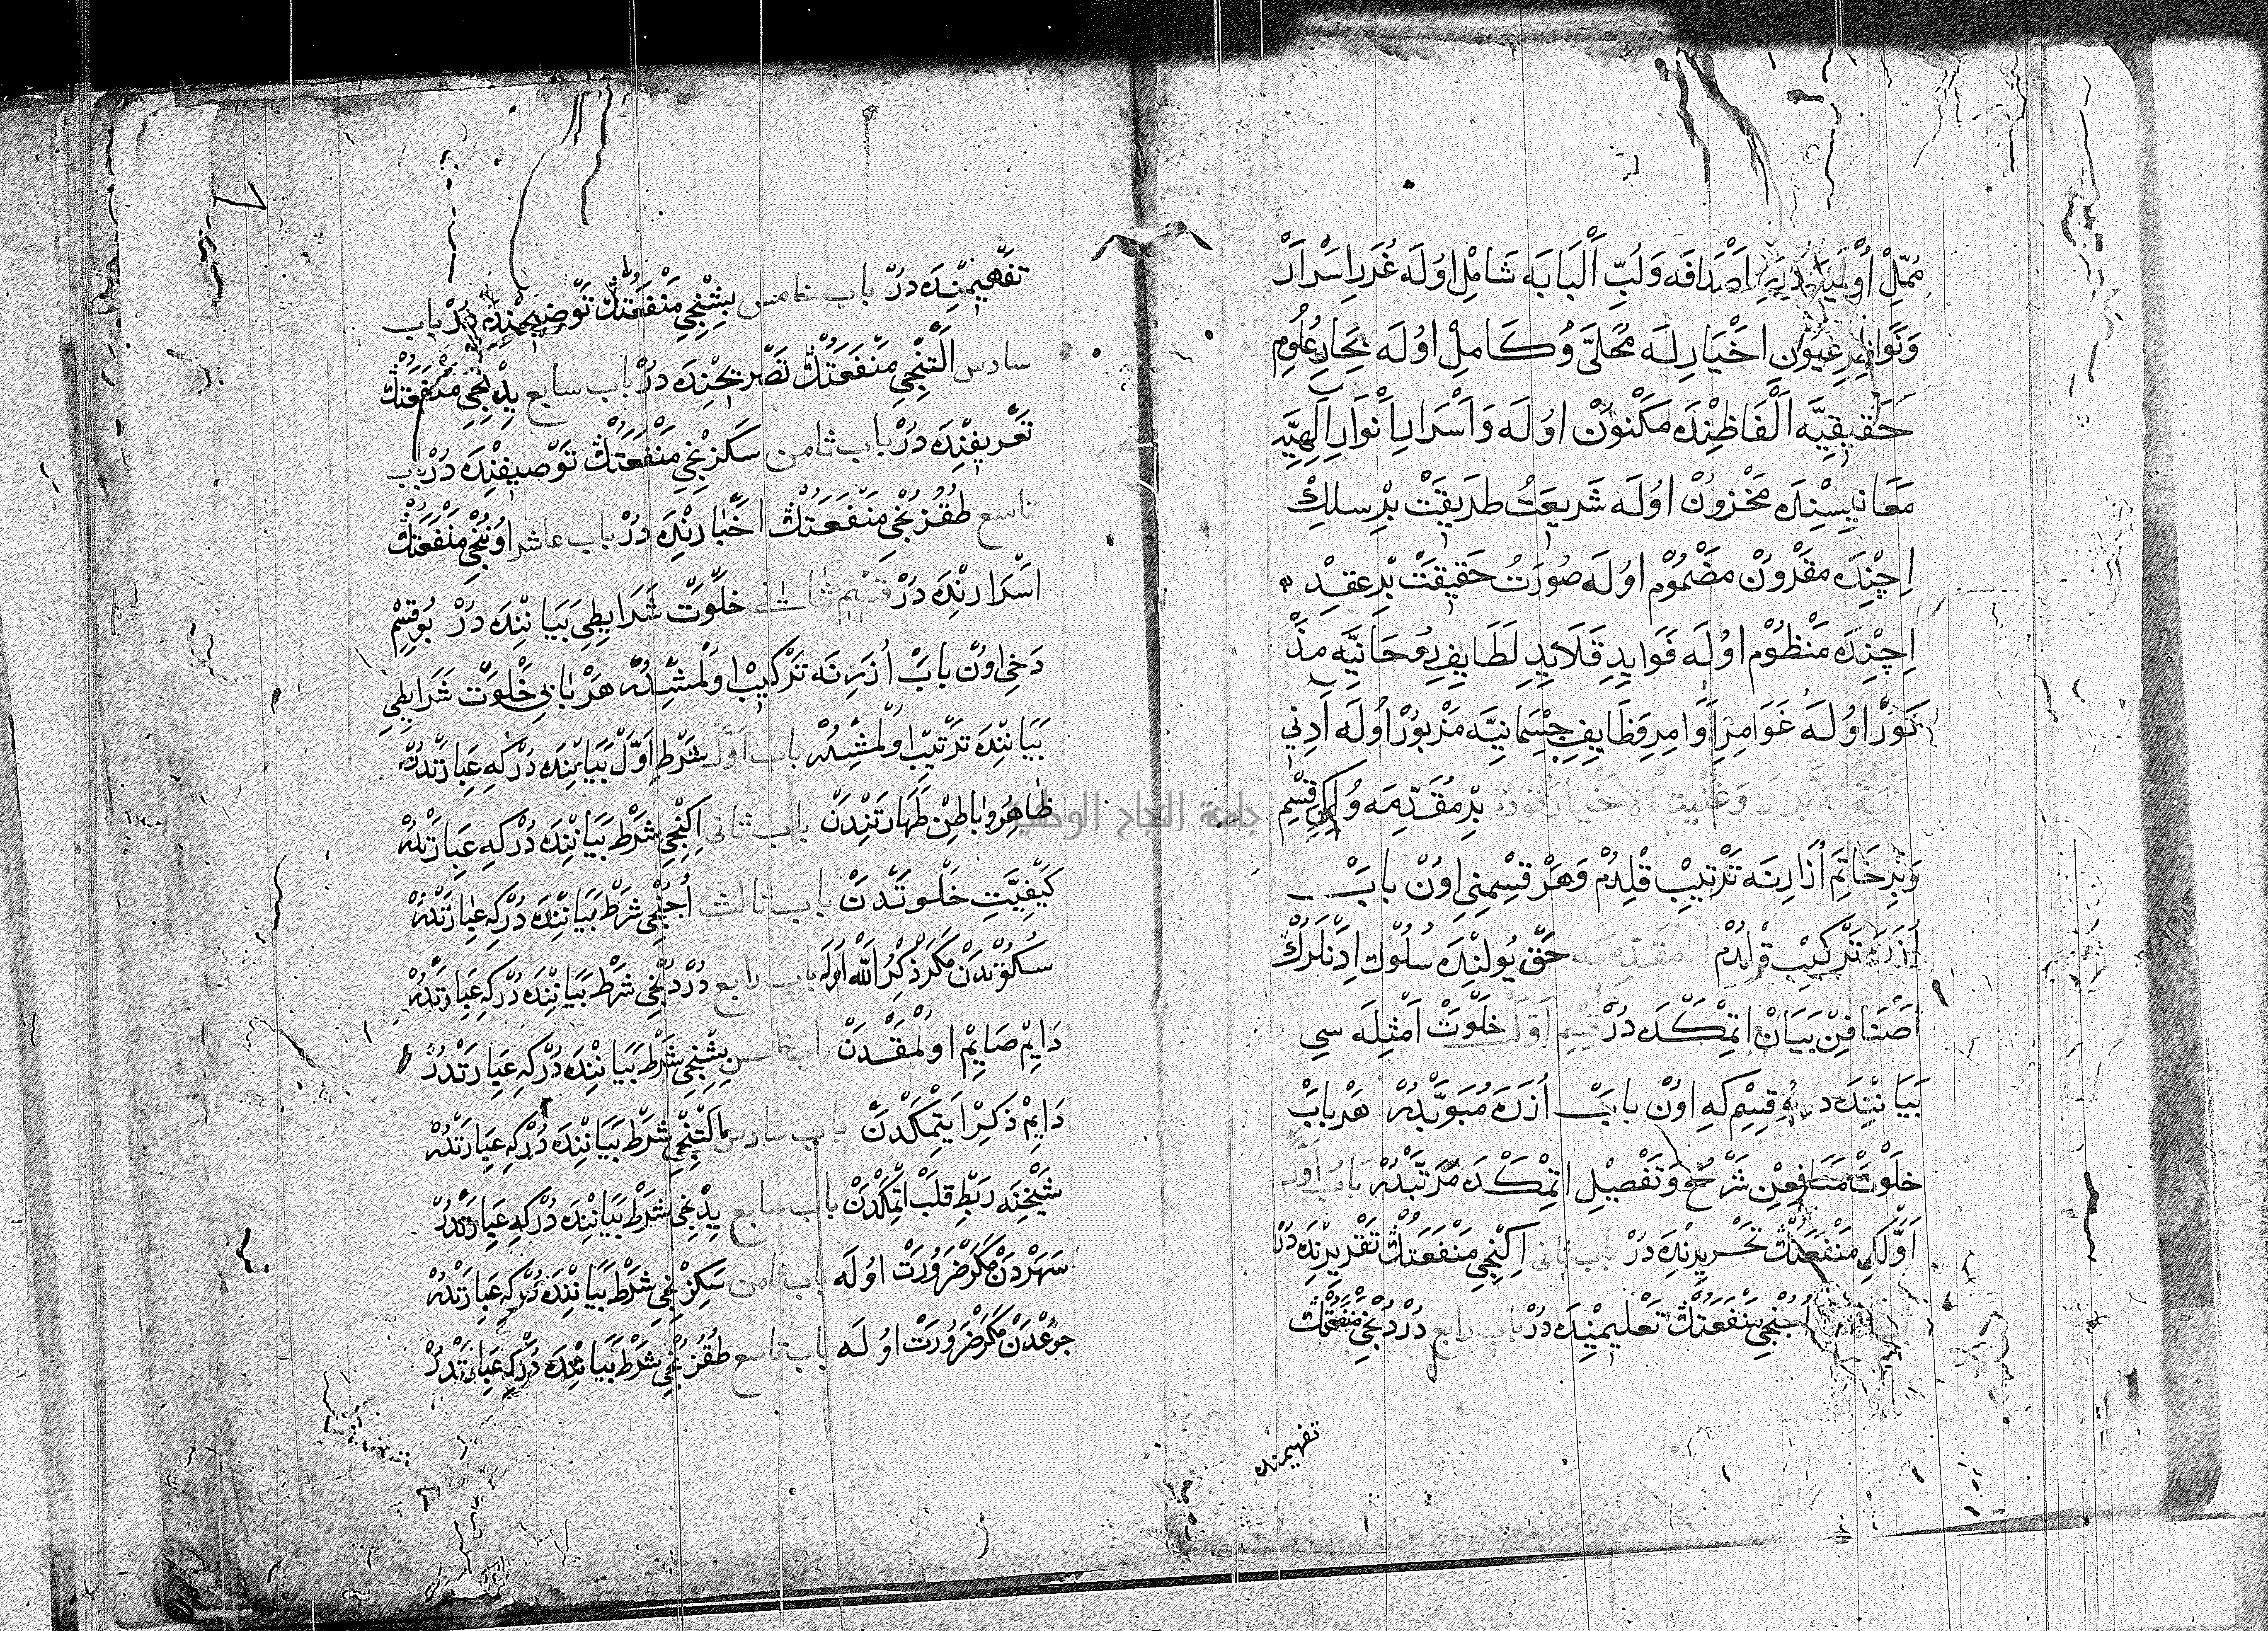 اَصْدَافَه وَلُبِّ اَلْبَابَه شَامِلْ اوُلَه غُرَرِ اسْرَارْ
وَنَوَاظِرِ عُيُون اخْيَارِلَه مُحَلَّى وُكَامِلْ اوُلَه بِحَارِ عُلُومِ
حَقِيقِيَّه اَلْفَاظِنْدَه مَكْنُونْ اوُلَه وَاَسْرَارِ اَنْوَارِ اِلَهِيَّه
مَعَانِيسِنْدَه مَخْزُونْ اوُلَه شَرِيعَتْ طَرِيقَتْ بِرْ سِلكِكْ
اِچِنْدَه مَقْرُونْ مَضْمُومْ اوُلَه صُورَتْ حَقِيقَتْ بِرْ عِقدِكْ
اِچِنْدَه مَنْظُومْ اوُلَه فَوَايِدِ قَلَايِدِ لَطَايِفِ رُوحَانِيَّه مَذْ
كُورْ اوُلَه غَوَامِزِ اَوَامِرِ وَظَايِفِ جِسْمَانِيَّه مَزْبُورْ اوُلَه اَدِنِي
وَغُنْيَةُ الاَخْيَارْ قودم بِرْ مُقَدِّمَه وُ اِكِى قِسْمِ
وَبِرْ خَاتِمَه اُزَارِنَه تَرْتِيبْ قِلْدُمْ وَهَرْ قِسْمِنِى اوُنْ بَابْ
اُزَرَه تَرْكِيبْ قِلْدُمْ اَلمُقَدِّمَه حَقْ يُولِنْدَه سُلُوك اِدَنْلَرُكْ
اَصْنَافِنْ بَيَانْ اتِمْكَدَه دُرْ قِسْمِ اَوَّلْ خَلْوَتْ اَمْثِلَه سِي
بَيَانِنْدَه دربُو قِسِمْ كِه اوُنْ بَابْ اُزَرَه مُبَوَّبْدُرْ هَرْ بَابْ
خَلْوَتْ مَنَافِعِنْ شَرْحُ وَتَفْصِيلْ اتِمْكَدَه مُرَتَّبْدُرْ بَابُ اَوَّلْ
اَوَّلْكِى مَنْفَعَتُكْ تَحْرِيرِنْدَه دُرْ باب ثانى اِكِنْجِي مَنْفَعَتُكْ تَقْرِيرِنْدَه دُرْ
اُجُنْجِي مَنْفَعَتُكْ تَعْلِيمِنْدَه دُرْ باب رابع دُرْدُنْجِي مَنْفَعَتُكْ
تفهيمنده
تَفْهِيمِنْدَه دُرْ باب خامس بِشِنْجِي مَنْفَعَتُكْ تَوْضِيحِنْدَه دُرْ باب
سادس اَلْتِنْجِي مَنْفَعَتُكْ تَصْرِيحِنْدَه دُرْ باب سابع يِدِنْجِي مَنْفَعَتُكْ
تَعْرِيفِنْدَه دُرْ باب ثامن سَكِزِنْجِي مَنْفَعَتُكْ تَوْصِيفِنْدَه دُرْ باب
تاسع طُقُزُنْجِي مَنْفَعَتُكْ اخْبَارِنْدَه دُرْ باب عاشر اوُنُنْجِي مَنْفَعَتُكْ
اسْرَارِنْدَه دُرْ قِسْمِ ثانى خَلْوَتْ شَرَايِطِي بَيَانِنْدَه دُرْ بُو قِسِمْ
دَخِي اوُنْ بَابْ اُزَرِنَه تَرْكِيبْ اوُلْمِشْدُرْ هَرْ بَابِى خَلْوَتْ شَرَايِطِي
بَيَانِنْدَه تَرْتِيبْ اوُلْمِشْدُرْ باب اَوَّلْ شَرْطِ اَوَّلْ بَيَانِنْدَه دُرْ كِه عِبَارَتْدُرْ
ظَاهِرُ وبَاطِنْ طَهَارَتِنْدَنْ باب ثانى اِكِنْجِي شَرْطْ بَيَانِنْدَه دُرْ كِه عِبَارَتْدُرْ
كَيْفِيَّتِ خَلْوَتْدَنْ باب ثالث اُجُنْجِي شَرْطْ بَيَانِنْدَه دُرْ كِه عِبَارَتْدُرْ
سُكُوتْدَنْ مَكَرْ ذِكْرُ اللّٰه اوُلَه باب رابع دُرْدُنْجِي شَرْطْ بَيَانِنْدَه دُرْ كِه عِبَارَتْدُرْ
دَايِمْ صَايِمْ اوُلْمَقْدَنْ باب خامس بِشِنْجِي شَرْطْ بَيَانِنْدَه دُرْ كِه عِبَارَتْدُرْ
دَايِمْ ذِكِرْ اَيتْمَكْدَنْ باب سادس اَلْتِنْجِي شَرْطْ بَيَانِنْدَه دُرْ كِه عِبَارَتْدُرْ
شَيْخِنَه رَبْطِ قَلْبْ اتِمْكْدَنْ باب سابع يِدِنْجِي شَرْطْ بَيَانِنْدَه دُرْ كِه عِبَارَتْدُرْ
سَهَرْدَنْ مَكَرْ ضَرُورَتْ اوُلَه باب ثامن سَكِزِنْجِي شَرْطْ بَيَانِنْدَه دُرْ كِه عِبَارَتْدُرْ
جُوعْدَنْ مَكَرْ ضَرُورَتْ اوُلَه باب تاسع طُقُزُنْجِي شَرْطْ بَيَانِنْدَه دُرْ كِه عِبَارَتْدُرْ
جامعة النجاح الوطنية